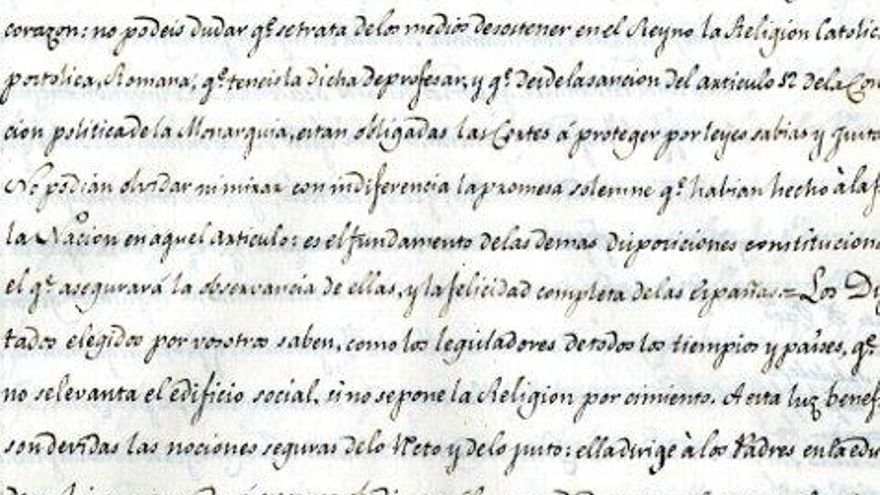 corazon: no podeis dudar qe. se trata de los medios de sostener en el Reyno la Religion Catolic
postolica, Romana; qe. teneis la dicha de profesar, y qe. desde la sancion del articulo 12 de la Con
cion politica de la Monarquia, estan obligadas las Cortes á proteger por leyes sabias y justa
No podian olvidar ni mirar con indiferencia la promesa solemne qe. habian hecho à la f
la Nacion en aquel articulo: es el fundamento de las demas disposiciones constitucion
el qe. asegurará la observancia de ellas, y la felicidad completa de las Españas.= Los Di
tados elegidos por vosotros saben, como los legisladores de todos los tiempos y países, qe.
no se levanta el edificio social, si no se pone la Religion por cimiento. A esta luz benef
son devidas las nociones seguras de lo Recto y de lo justo: ella dirige à los Padres en la edu